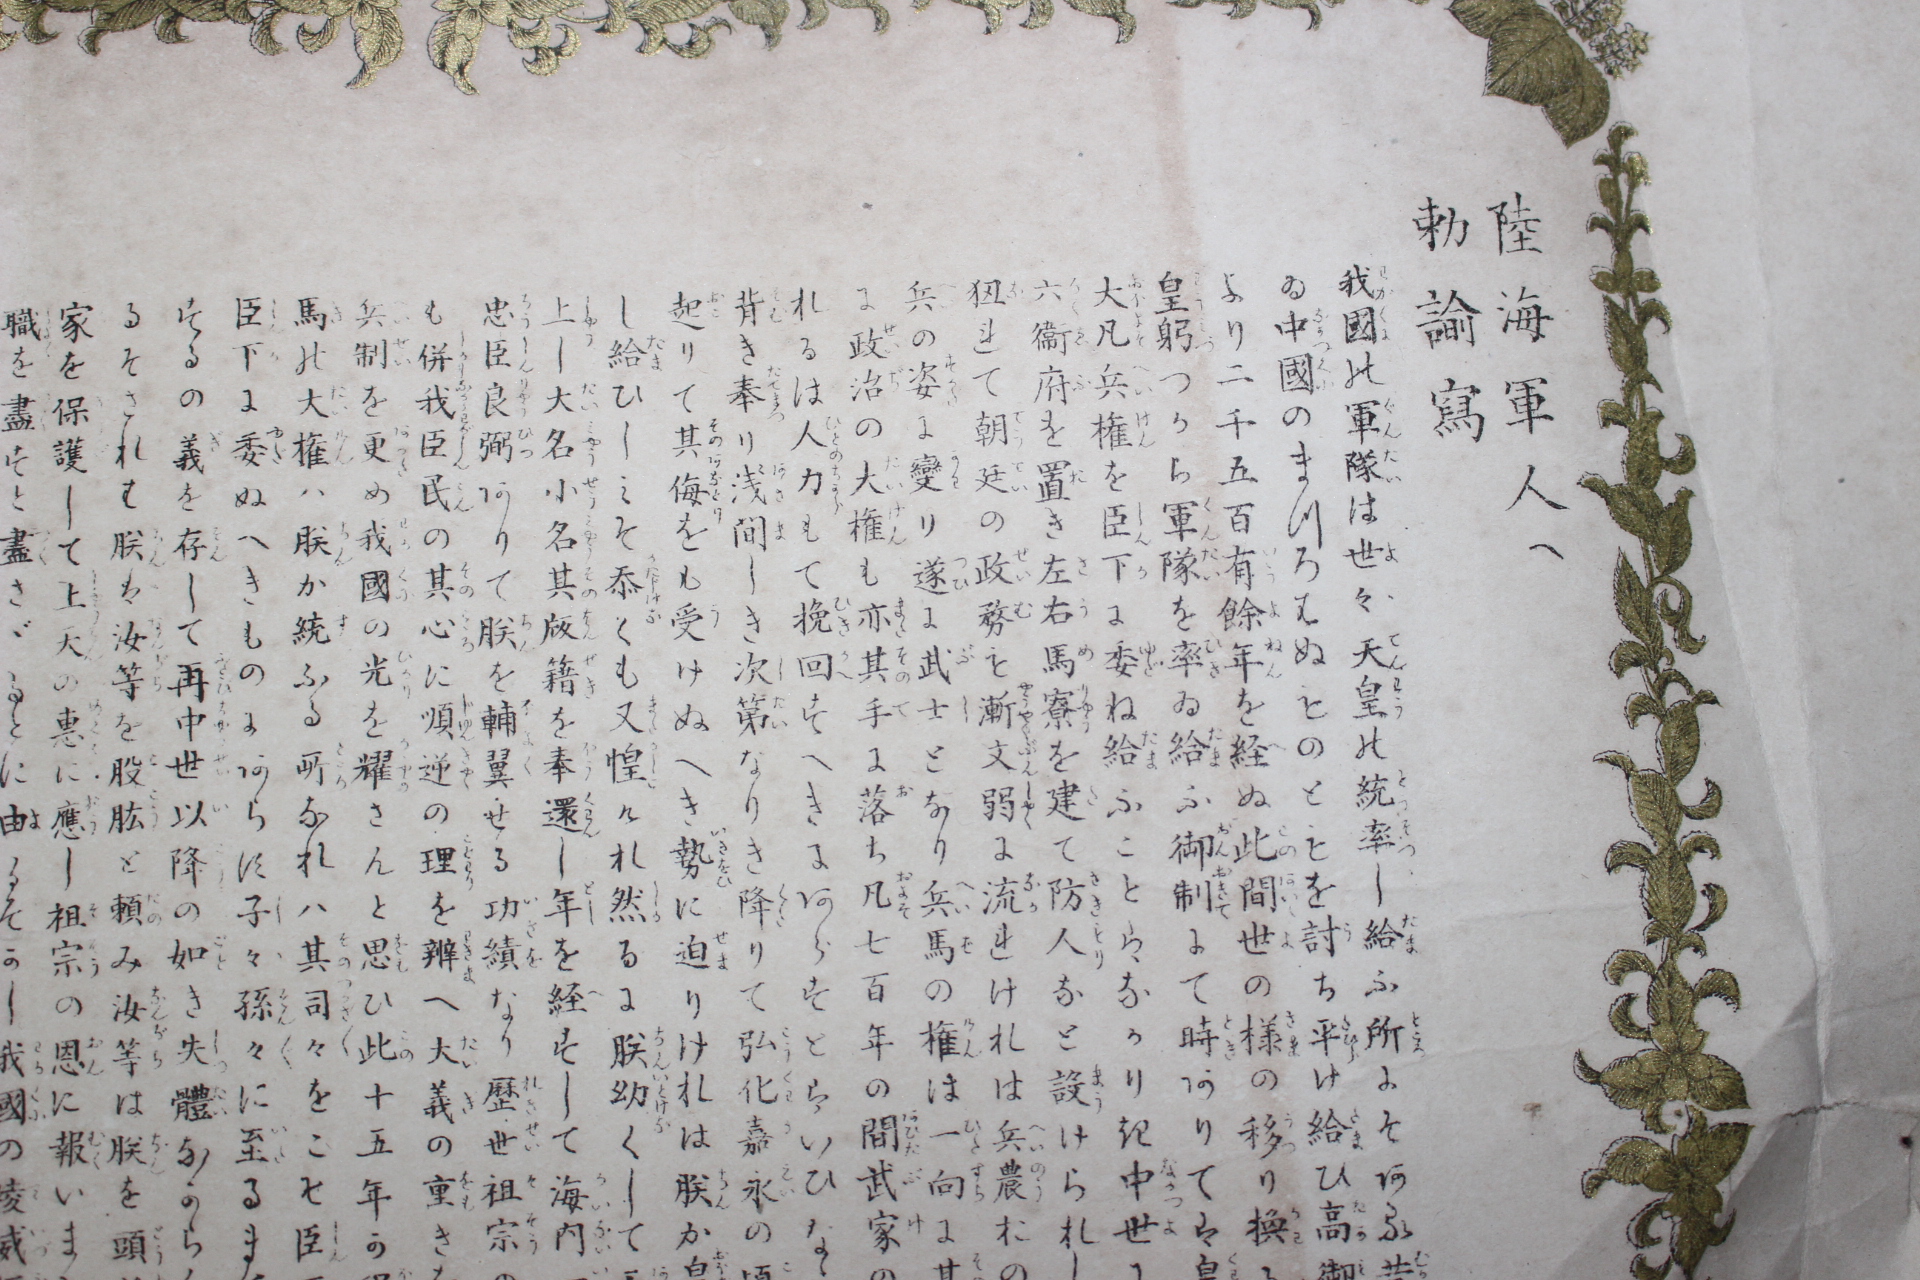 陸海軍人へ
勅諭寫
我國の軍隊は世々天皇の統率し給ふ所にそある昔
ゐ中國のまつろはぬものともを討ち平け給ひ高御
より二千五百有餘年を経ぬ此間世の様の移り換る
皇躬つから軍隊を率ゐ給ふ御制にて時ありては皇
大凡兵権を臣下に委ね給ふことはなかりき中世に
六衞府を置き左右馬寮を建て防人なと設けられし
狃れて朝廷の政務も漸文弱に流れけれは兵農おの
兵の姿に變り遂に武士となり兵馬の権は一向に其
に政治の大権も亦其手に落ち凡七百年の間武家の
れるは人力もて挽回すへきにあらすとはいひな
背き奉り浅間しき次第なりき降りて弘化嘉永の頃
起りて其侮をも受けぬへき勢に迫りけれは朕か皇
し給ひしこそ忝くも又惶けれ然るに朕幼くして
上し大名小名其版籍を奉還し年を経すして海内
忠臣良弼ありて朕を輔翼せる功績なり歴世祖宗の
も併我臣民の其心に順逆の理を辨へ大義の重き
兵制を更め我國の光を耀さんと思ひ此十五年か
馬の大権ハ朕か統ふる所なれハ其司々をこそ臣
臣下に委ぬへきものにあらす子々孫々に至るま
するの義を存して再中世以降の如き失體なからん
るそされは朕は汝等を股肱と頼み汝等は朕を頭
家を保護して上天の恵に應し祖宗の恩に報いま
職を盡すと盡さゞるとに由るそかし我國の稜威